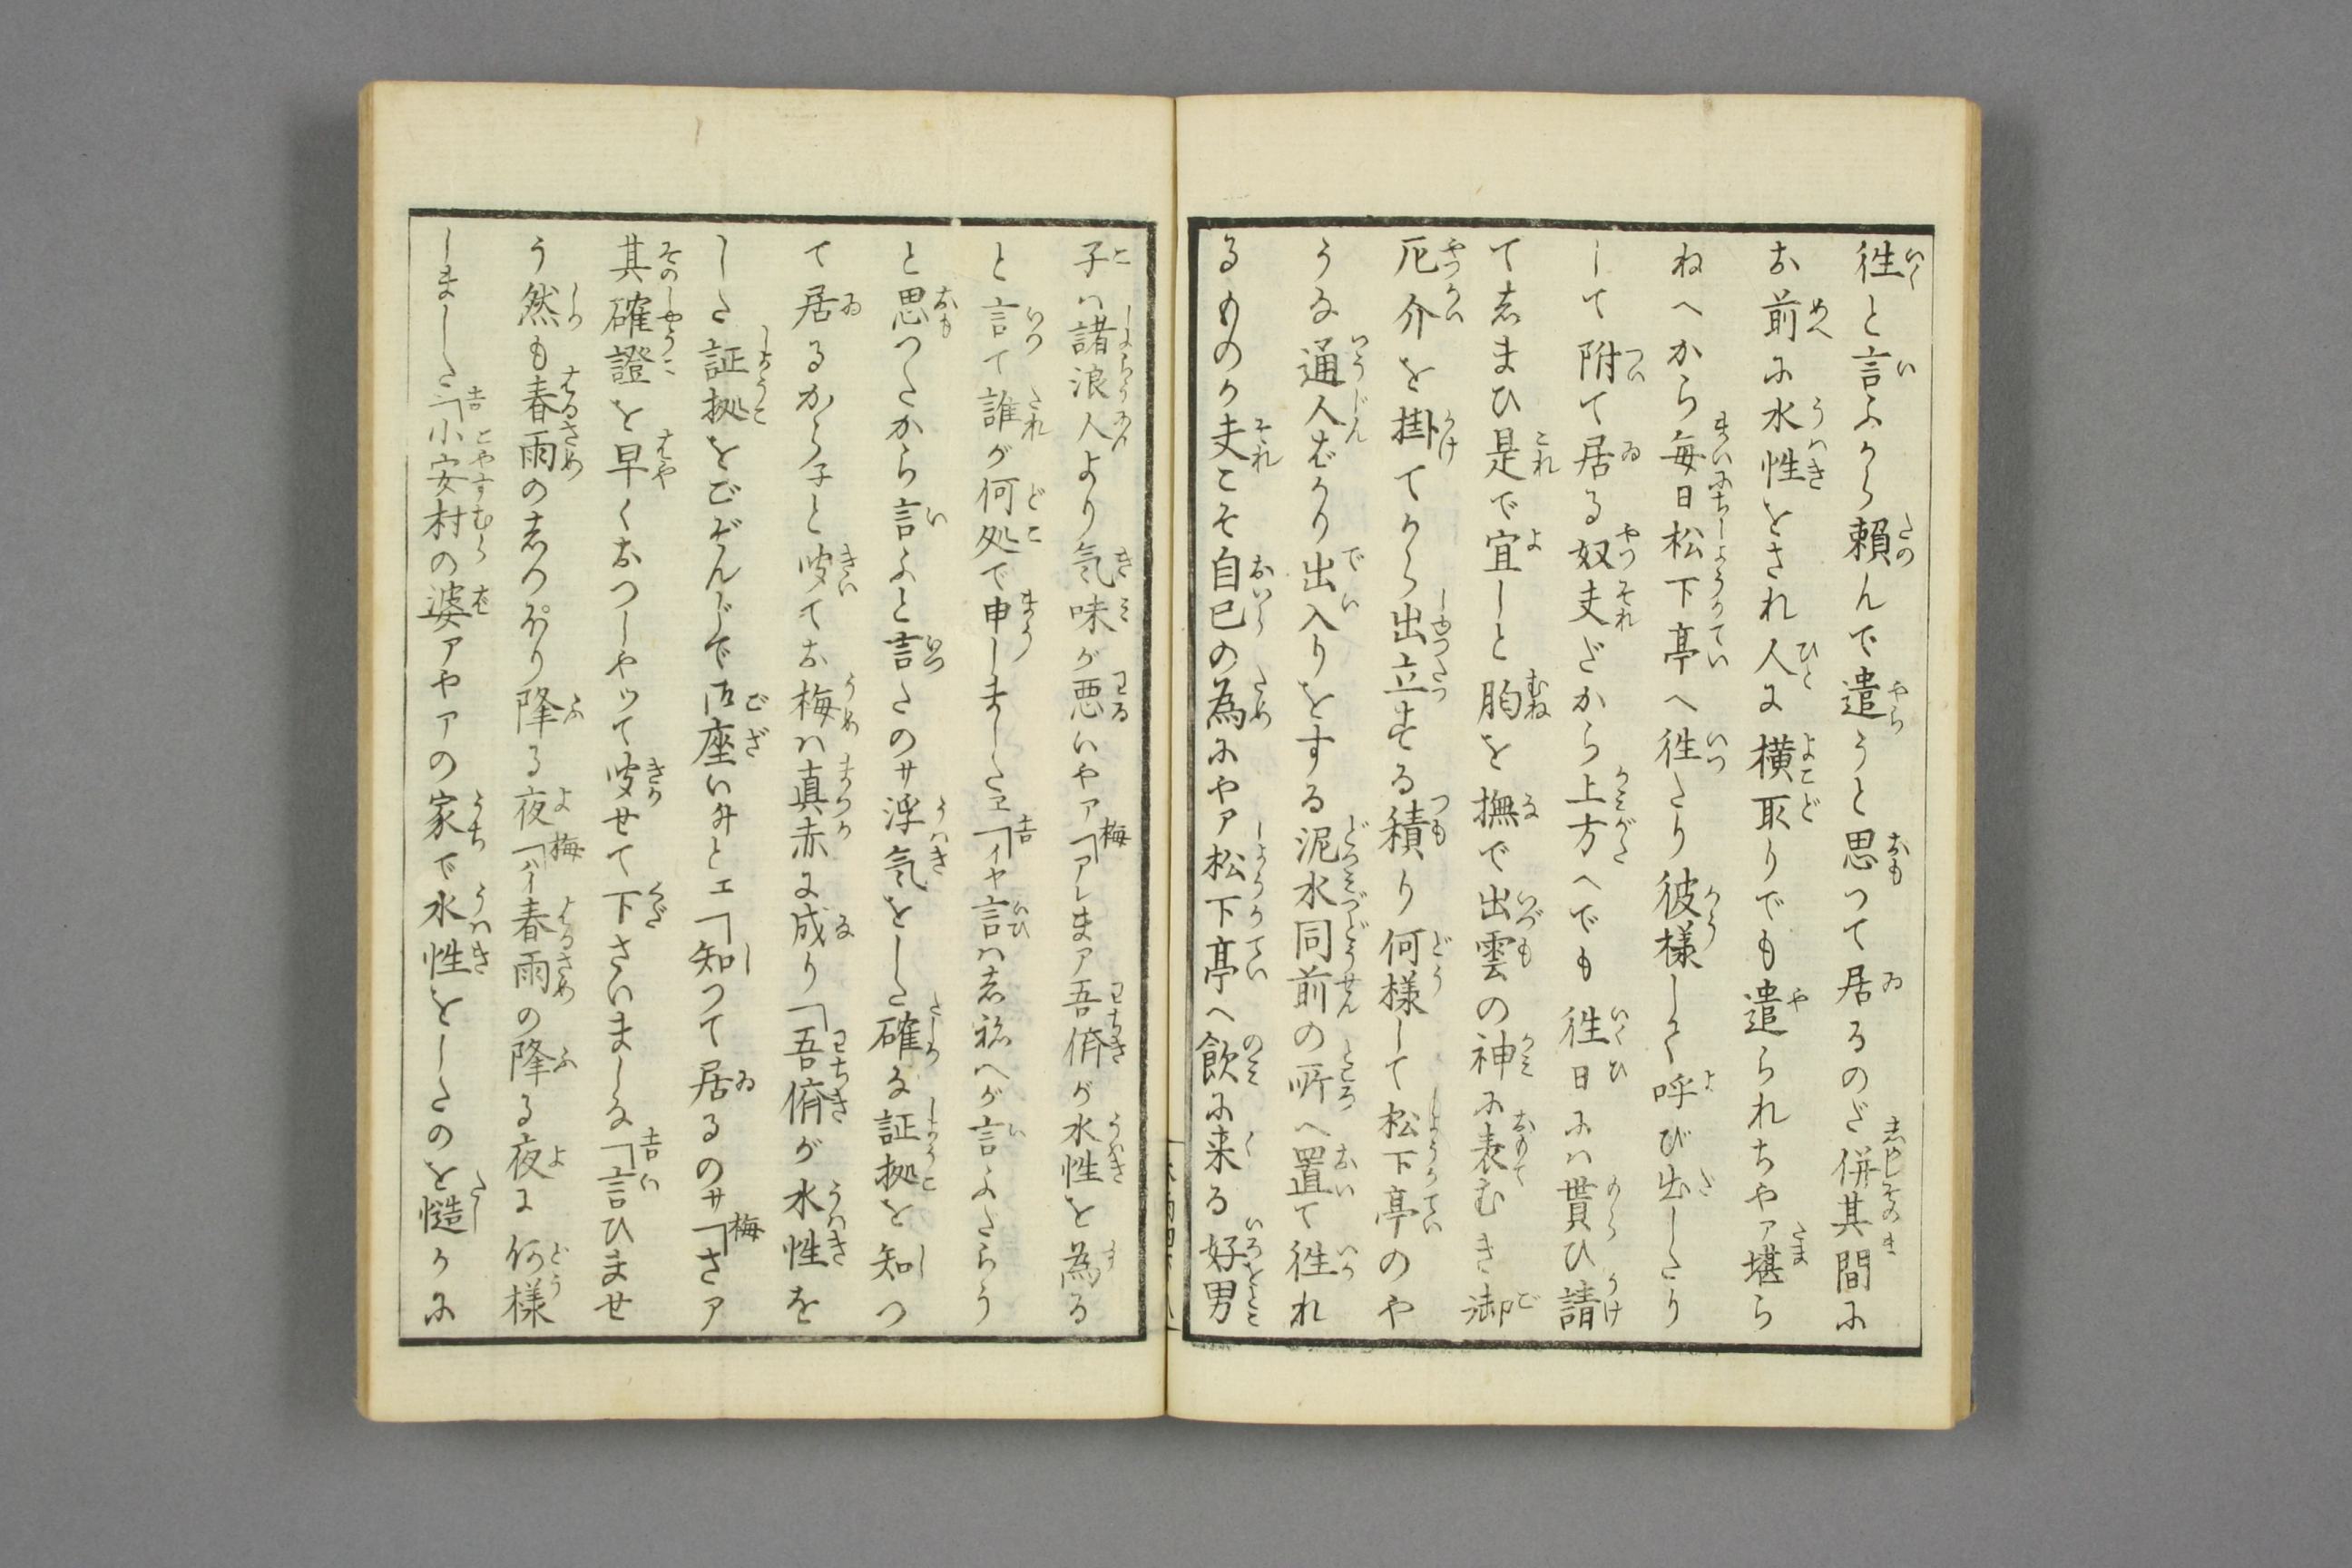 徃と言ふから頼んで遣うと思つて居るのだ併其間に
お前に水性をされ人に横取りでも遣られちやァ堪ら
ねへから毎日松下亭へ徃たり彼様しく呼び出したり
して附て居る奴夫だから上方へでも徃日にハ貰ひ請
てしまひ是で宜しと胸を撫で出雲の神に表むき御
厄介を掛てから出立する積り何様して松下亭のや
うな通人ばかり出入りをする泥水同前の所へ置て徃れ
るものか夫こそ自己の為にやァ松下亭へ飲に来る好男
子ハ諸浪人より気味が悪いやァ梅「アレまァ吾儕が水性を為る
と言て誰が何処で申しましたヱ吉「イヤ言ハしねへが言ふだらう
と思つたから言ふと言たのサ浮気をした確な証拠を知つ
て居るから子と哅てお梅ハ真赤に成り「吾儕が水性を
した証拠をごぞんじで御座いますとエ「知つて居るのサ梅「さァ
其確證を早くおつしやツて哅せて下さいましな吉「言ひませ
う然も春雨のしつぽり降る夜梅「ハイ春雨の降る夜に何様
しました吉「小安村の婆ァやァの家で水性をしたのを慥かに